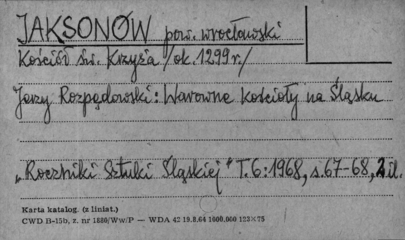 JAKSONÓW pow. wrocławski
Kościół św. Krzyża /ok. 1299 r/
Jerzy Rozpędowski: Warowne kościoły na Śląsku
„Roczniki Sztuki Śląskiej" T.6:1968, s.67-68, 2 il.
Karta katalog. (z liniat.)
CWD B-15b, z. nr 1880/Ww/P — WDA 42 19.8.64 1000.000 123×75